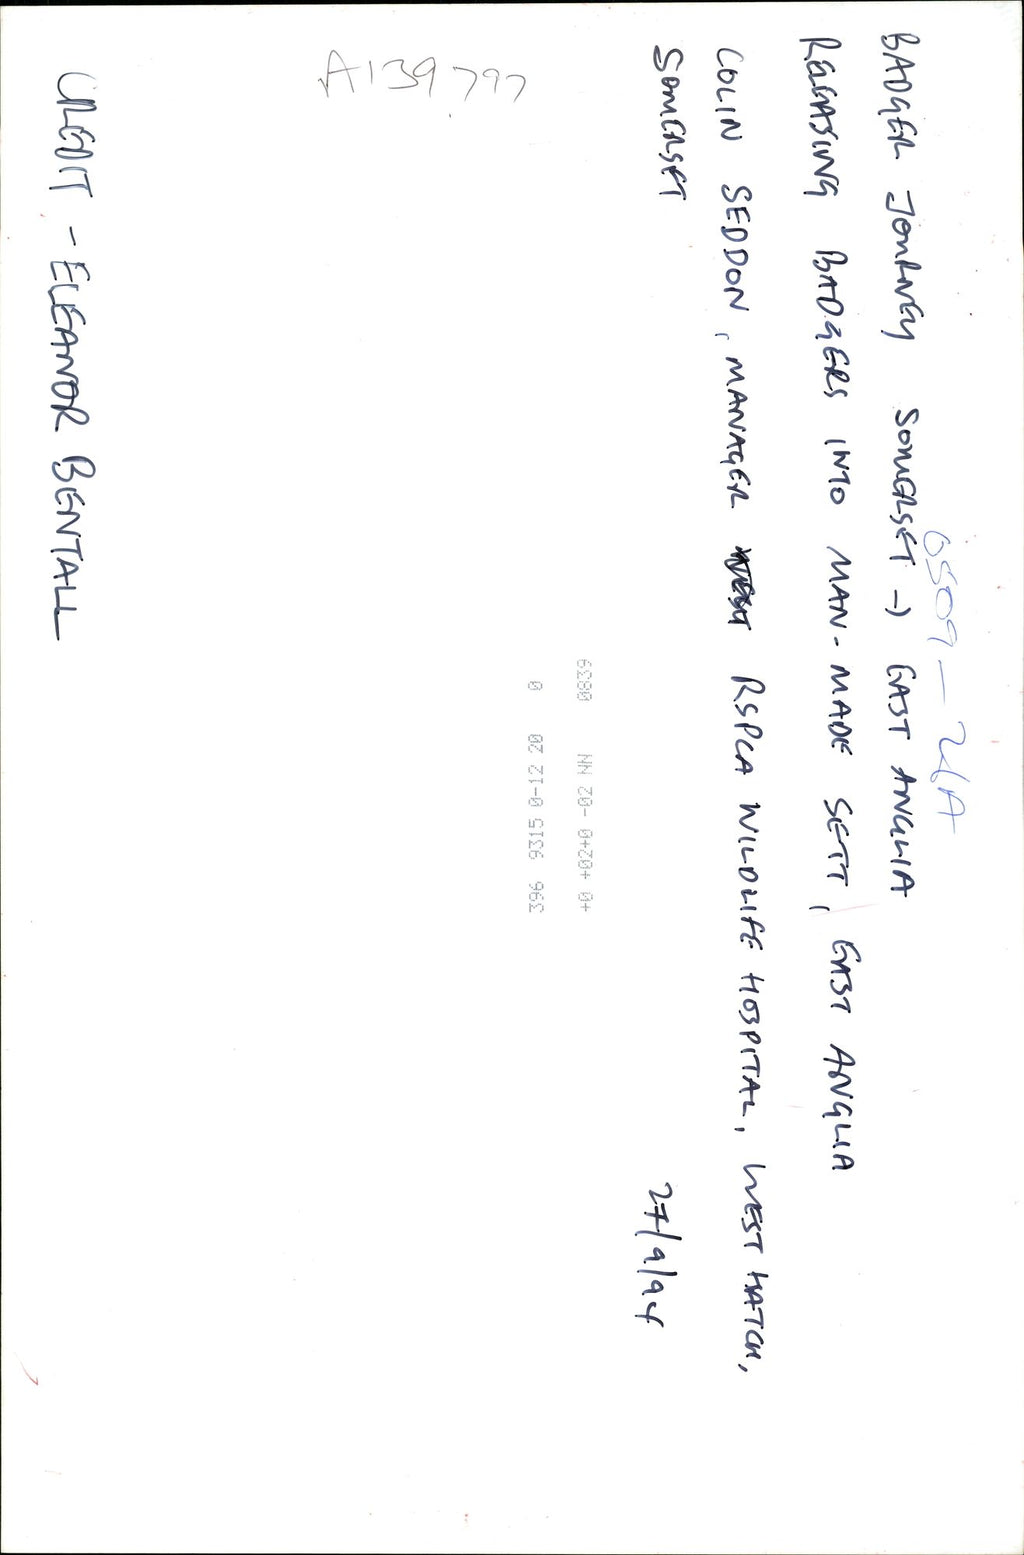 6509-21A
BADGER JOURNEY SOMERSET -> EAST ANGLIA
RELEASING BADGERS INTO MAN-MADE SETT, EAST ANGLIA
COLIN SEDDON, MANAGER WEST RSPCA WILDLIFE HOSPITAL, WEST HATCH,
SOMERSET
27/9/94
0839 NN 20- 0+02+ 0+
0 02 21-0 5136 966
A139797
CREDIT - ELEANOR BENTALL